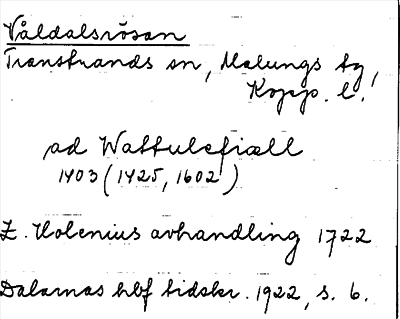 Våldalsrösan
Transtrands sn, Malungs tg,
Kopp. l.
ad Wattulefiæll
1403 (1425, 1602)
E. Holenius avhandling 1722
Dalarnas hbf tidskr. 1922, s. 6.